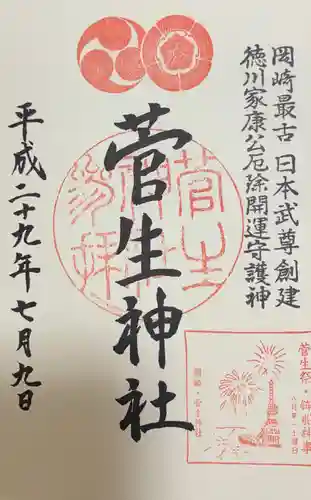 岡崎最古 日本武尊創建
徳川家康公厄除開運守護神
菅生神社
平成二十九年七月九日
菅生神社
参拝
菅生祭・鉾船神事
岡崎・菅生神社